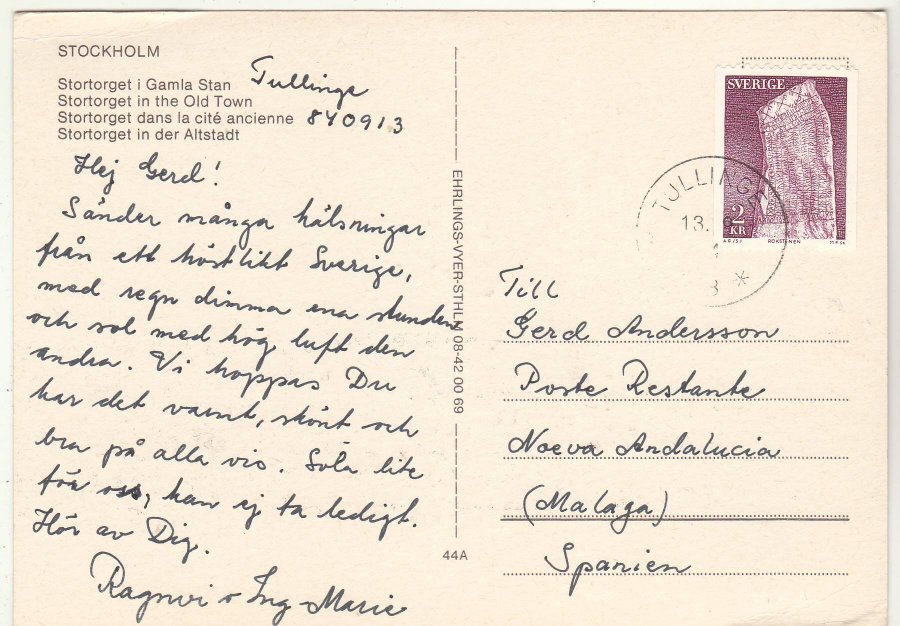 STOCKHOLM
Stortorget i Gamla Stan
Stortorget in the Old Town
Stortorget dans la cité ancienne
Stortorget in der Altstadt
Tullinge
840913
Hej Gerd!
Sänder många hälsningar
från ett höstlikt Sverige,
med regn dimma ena stunden
och sol med hög luft den
andra. Vi hoppas Du
har det varmt, skönt och
bra på alla vis. Sola lite
för oss, kan ej ta ledigt.
Hör av Dig.
Ragnvi o Ing-Marie
EHRLINGS-VYER-STHLM 08-42 00 69
44A
SVERIGE
2
KR
ROKSTENEN
TULLINGE
13.
Till
Gerd Andersson
Poste Restante
Noeva Andalucia
(Malaga)
Spanien